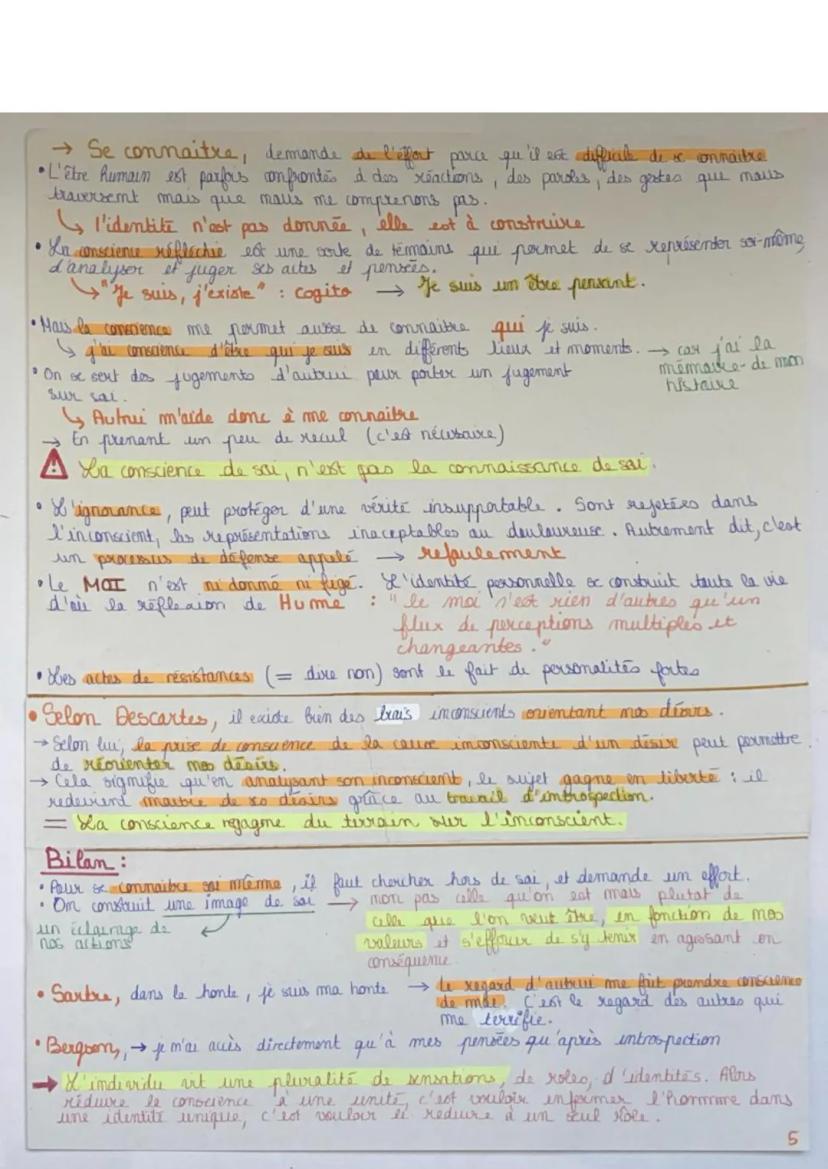 → Se connaitre, demande de l'effort parce qu'il est difficile de se connaitre
• L'être humain est parfois confrontés à des réactions, des paroles, des gestes que nous
traversent mais que nous ne comprenons pas.
↳ l'identité n'est pas donnée, elle est à construire
• La conscience réfléchie est une sorte de témoins qui permet de se représenter soi-même,
d'analyser et juger ses actes et pensées.
↳ "Je suis, j'existe" : Cogito → Je suis un être pensant.
• Mais la conscience me permet aussi de connaitre qui je suis.
↳ j'ai conscience d'être qui je suis en différents lieux et moments. → car j'ai la
mémoire de mon
histoire
• On se sert des jugements d'autrui pour porter un jugement
sur soi.
↳ Autrui m'aide donc à me connaitre
→ En prenant un peu de recul (c'est nécessaire)
⚠ La conscience de soi, n'est pas la connaissance de soi.
• L'ignorance, peut protéger d'une vérité insupportable. Sont rejetées dans
l'inconscient, les représentations inaceptables ou douloureuse. Autrement dit, c'est
un processus de défense appelé → refoulement
• Le MOI n'est ni donné ni figé. L'identité personnelle se construit toute la vie
d'où la réflexion de Hume : "le moi n'est rien d'autres qu'un
flux de perceptions multiples et
changeantes."
• Les actes de résistances (= dire non) sont le fait de personalités fortes
• Selon Descartes, il existe bien des biais inconscients orientant nos désirs.
→ Selon lui, la prise de conscience de la cause inconsciente d'un désire peut permettre
de réorienter nos désirs.
→ Cela signifie qu'en analysant son inconscient, le sujet gagne en liberté : il
redevient maitre de ses désirs grâce au travail d'introspection.
= La conscience regagne du terrain sur l'inconscient.
Bilan :
• Pour se connaitre soi même, il faut chercher hors de soi, et demande un effort.
• On construit une image de soi → non pas celle qu'on est mais plutot de
celle que l'on veut être, en fonction de nos
valeurs et s'efforcer de s'y tenir en agissant en
conséquence.
un éclairage de
nos actions
• Sartre, dans la honte, je suis ma honte → Le regard d'autrui me fait prendre conscience
de moi. C'est le regard des autres qui
me terrifie.
• Bergson, → je n'ai accès directement qu'à mes pensées qu'après introspection
→ L'individu est une pluralité de sensations, de roles, d'identités. Alors
réduire la conscience à une unité, c'est vouloir enfermer l'homme dans
une identité unique, c'est vouloir le réduire à un seul rôle.
5